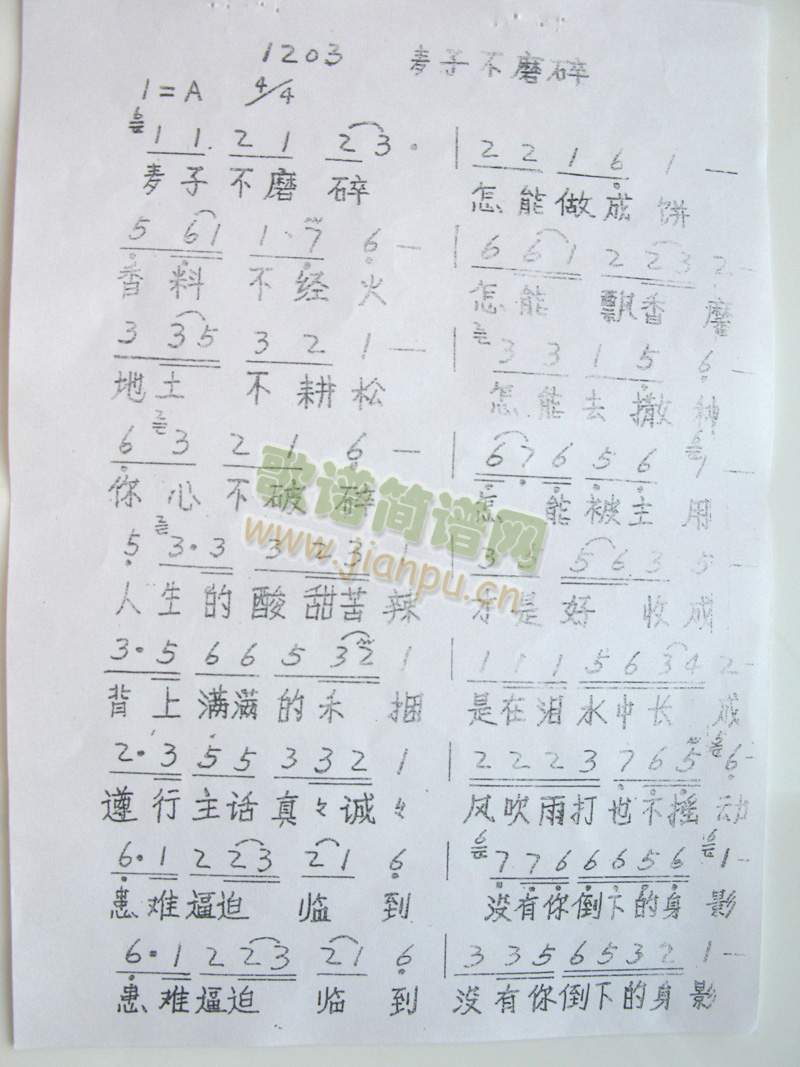 1203 麦子不磨碎
1=A 4/4
6 1 1. 2 1 2 3 · | 2 2 1 6 1 —
麦子不磨碎 怎能做成饼
5 6 1 1 · 7 6 — | 6 6 1 2 2 3 2 —
香料不经火 怎能飘香
3 3 5 3 2 1 — | 2 3 3 1 5 6 —
地土不耕松 怎能去撒种
6 2 3 2 1 6 — | 6 7 6 5 6 6 1 —
你心不破碎 怎能被主用
5 2 3 · 3 3 2 3 1 | 3 5 5 6 3 5 —
人生的酸甜苦辣 才是好收成
3 · 5 6 6 5 3 2 1 | 1 1 1 5 6 3 4 2 —
背上满满的禾捆 是在泪水中长成
2 · 3 5 5 3 3 2 1 | 2 2 2 3 7 6 5 6 —
遵行主话真々诚々 风吹雨打也不摇动
6 · 1 2 2 3 2 1 6 | 6 7 7 6 6 6 5 6 6 1 —
患难逼迫临到 没有你倒下的身影
6 · 1 2 2 3 2 1 6 | 3 3 5 6 5 3 2 1 —
患难逼迫临到 没有你倒下的身影
歌谱简谱网
www.jianpu.cn